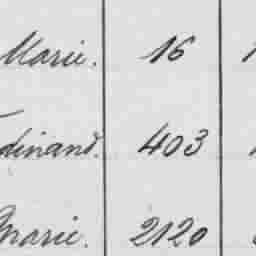 Marie. 16
dinand. 403
Marie. 2120